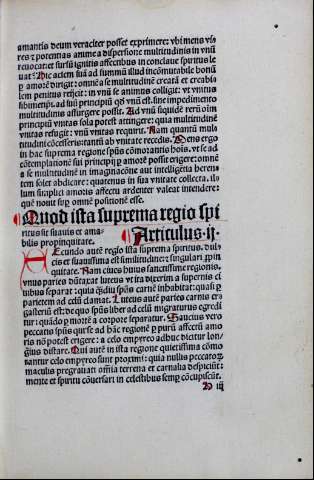 amantis deum veraciter posset exprimere: vbi mens vis
res ⁊ potentias anime a dispersione multitudinis in vnū
reuocat: et sursū ignitis affectibus in conclaue spiritus le
uat. Hic aciem suā ad summū illud incōmutabile bonū
⁊ amorē dirigit: omnē a se multitudinē creatā et creabi
lem penitus reijcit: in vnū se animus colligit: vt vnitus
sibimetipi. ad suū principiū qd vnū est. sine impedimento
multitudinis assurgere possit. Ad vnū siquidē rerū oīm
principiū vnitas sola potest attingere: quia multitudinē
vnitas refugit: vnū vnitas requirit. Nam quantū mul
titudini cōcesseris: tantū ab vnitate recedis. Dens ergo
in hac suprema regione spūs cōmorantis hoīs. vt se ad
cōtemplationē sui principij ⁊ amorē possit erigere: omnē
a se multitudinē in imaginatiōne aut intelligētia heren
tem solet abdicare: quatenus in sua vnitate collecta. il
lum simplici amoris affectu ardenter valeat intendere:
quē nouit sup omnē positionē esse.
¶ Quod ista suprema regio spi
ritus sit suauis et ama-
bilis propinquitate. ¶ Articulus .ij.
Secundo autē regio ista suprema spiritus. dul
cis et suauissima est similitudine: ⁊ singulari ppin
quitate. Nam ciues huius sanctissime regionis.
vnus paries duntaxat luteus vtita dixerim a supernis ci
uibus separat: quia qdiu spūs carnē inhabitat: quasi ꝓ
parietem ad celū clamat. Luteus autē paries carnis er
gasteriū est: de quo spūs liber ad celū migraturus egredi
tur: quādo ꝑ mortē a corpore separatur. Saucius vero
peccato spūs quirse ad hāc regionē ꝑ purū affectū amo
ris nō potest erigere: a celo empyreo adhuc dicitur lon
gius distare. Qui autē in ista regione quietissima cōmo
nantur celo empyreo sunt proximi: quia nullis peccatorū
maculis pregrauati omīa terrena et carnalia despiciūt:
mente et spiritu cōuersari in celestibus semp cōcupiscūt.
D iij